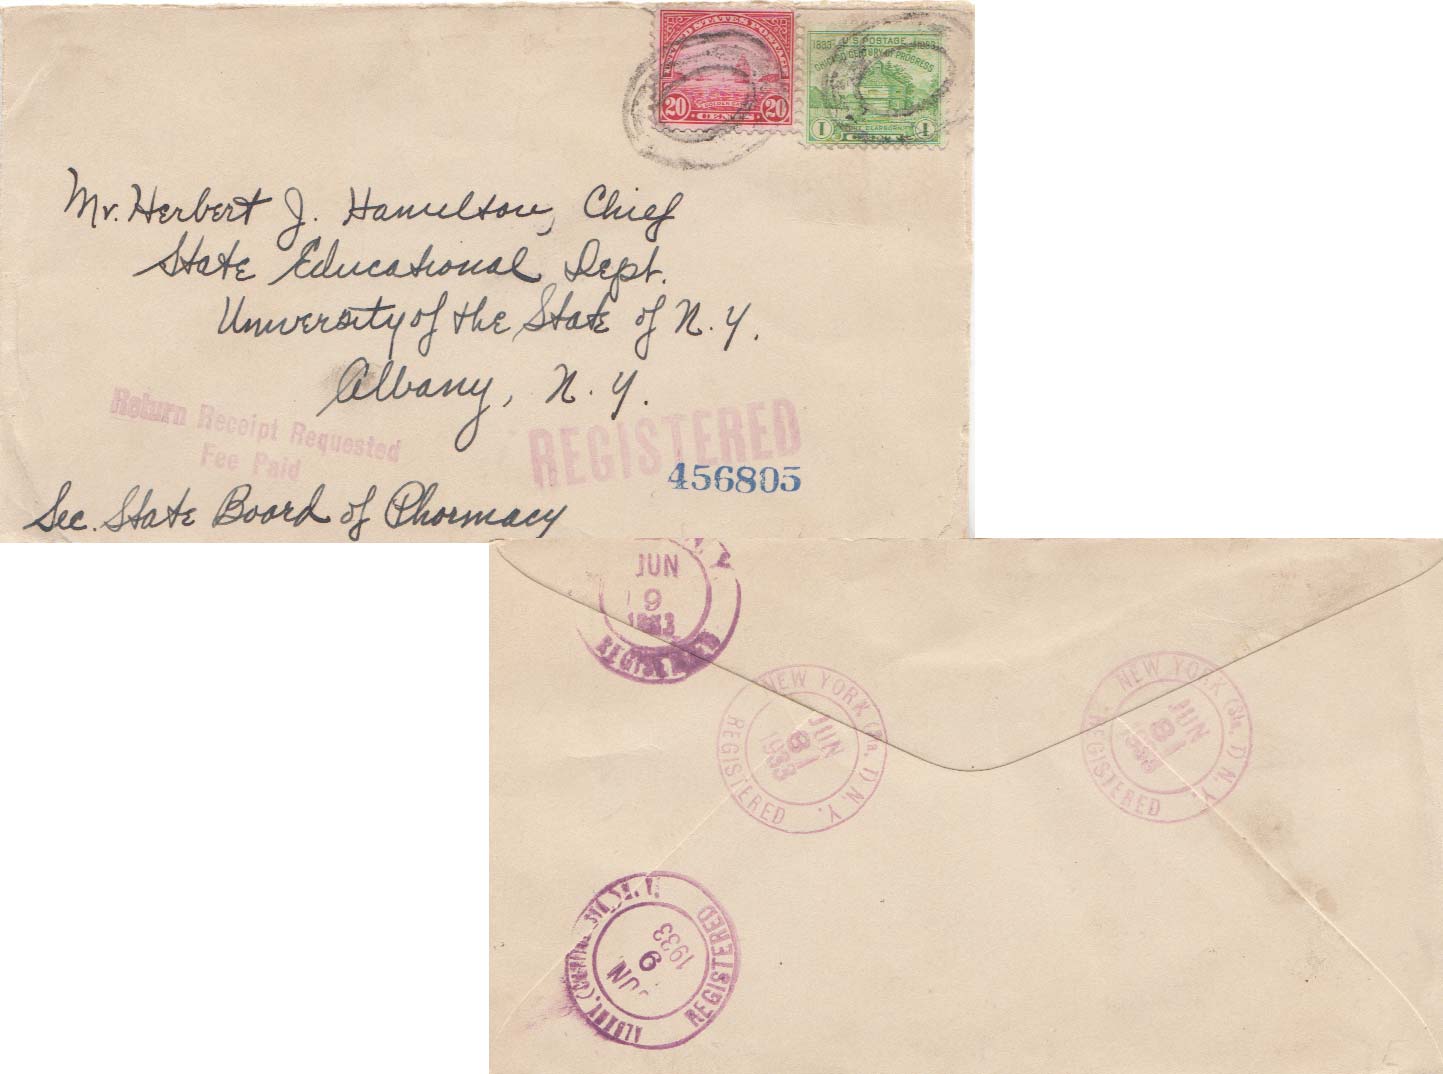 UNITED STATES POSTAGE
20 GOLDEN GATE 20
CENTS
U.S. POSTAGE
1833 1933
CHICAGO CENTURY OF PROGRESS
FORT DEARBORN
1 1
Mr. Herbert J. Hamilton, Chief
State Educational Dept.
University of the State of N. Y.
Albany, N. Y.
Return Receipt Requested
Fee Paid
REGISTERED
456805
Sec. State Board of Pharmacy
JUN
9
1933
REGISTERED
NEW YORK (Sta. T) N. Y.
JUN
8
1933
REGISTERED
NEW YORK (Sta. T) N. Y.
JUN
8
1933
REGISTERED
ALBANY,
JUN
9
1933
REGISTERED